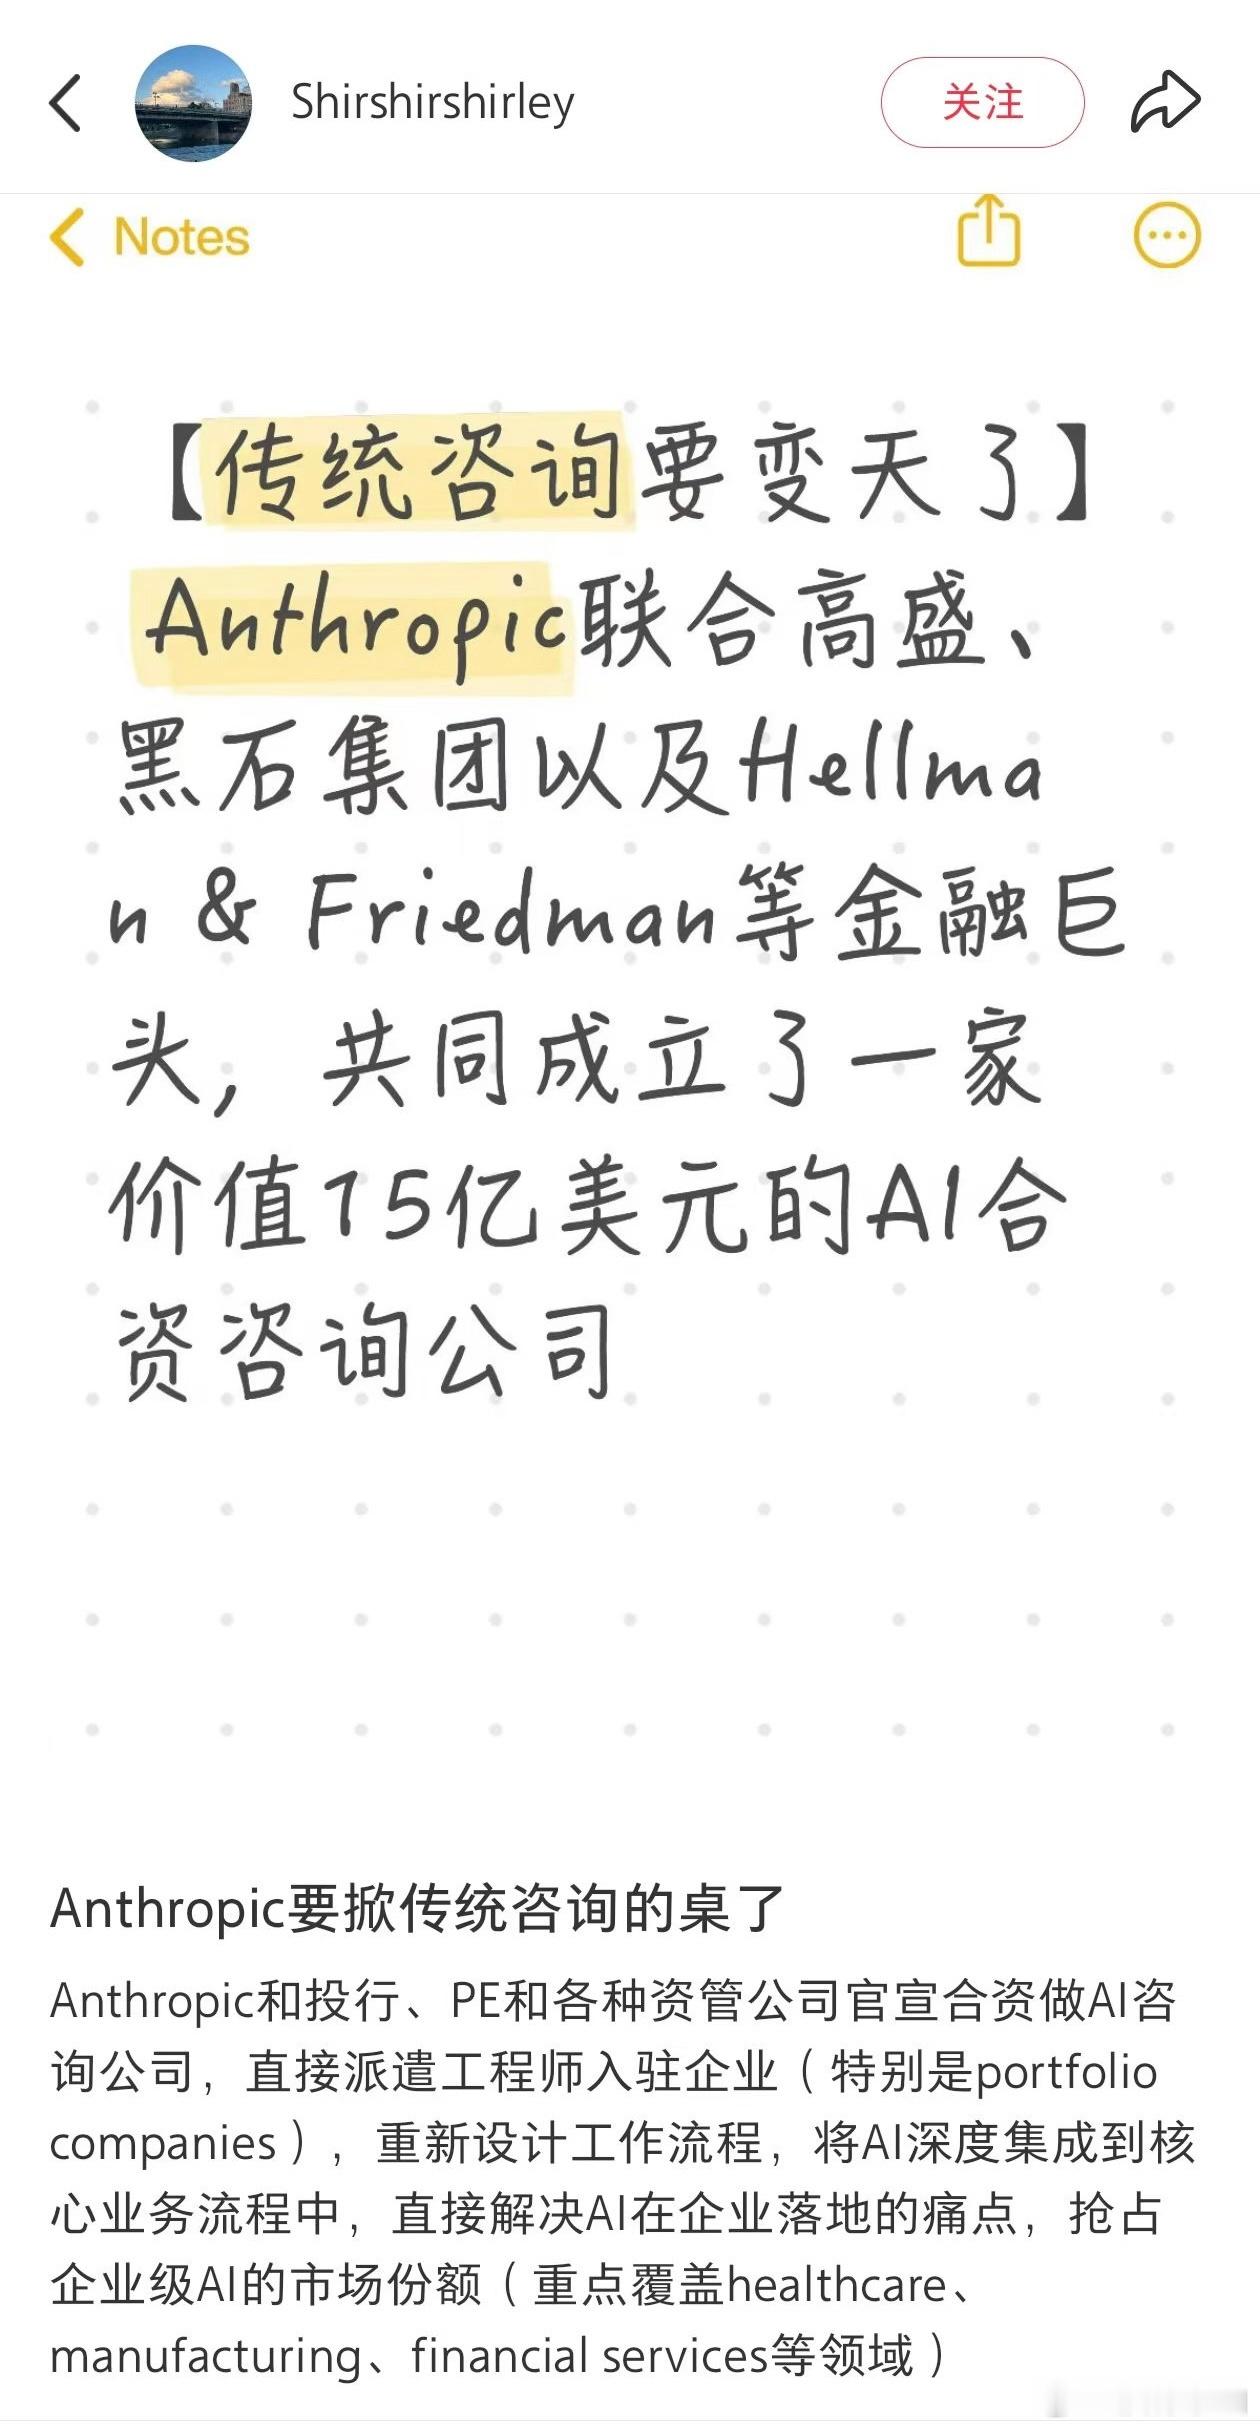 Shirshirshirley
关注
Notes
【传统咨询要变天了】
Anthropic联合高盛、
黑石集团以及Hellma
n & Friedman等金融巨
头，共同成立了一家
价值15亿美元的AI合
资咨询公司
Anthropic要掀传统咨询的桌了
Anthropic和投行、PE和各种资管公司官宣合资做AI咨
询公司，直接派遣工程师入驻企业（特别是portfolio
companies），重新设计工作流程，将AI深度集成到核
心业务流程中，直接解决AI在企业落地的痛点，抢占
企业级AI的市场份额（重点覆盖healthcare、
manufacturing、financial services等领域）